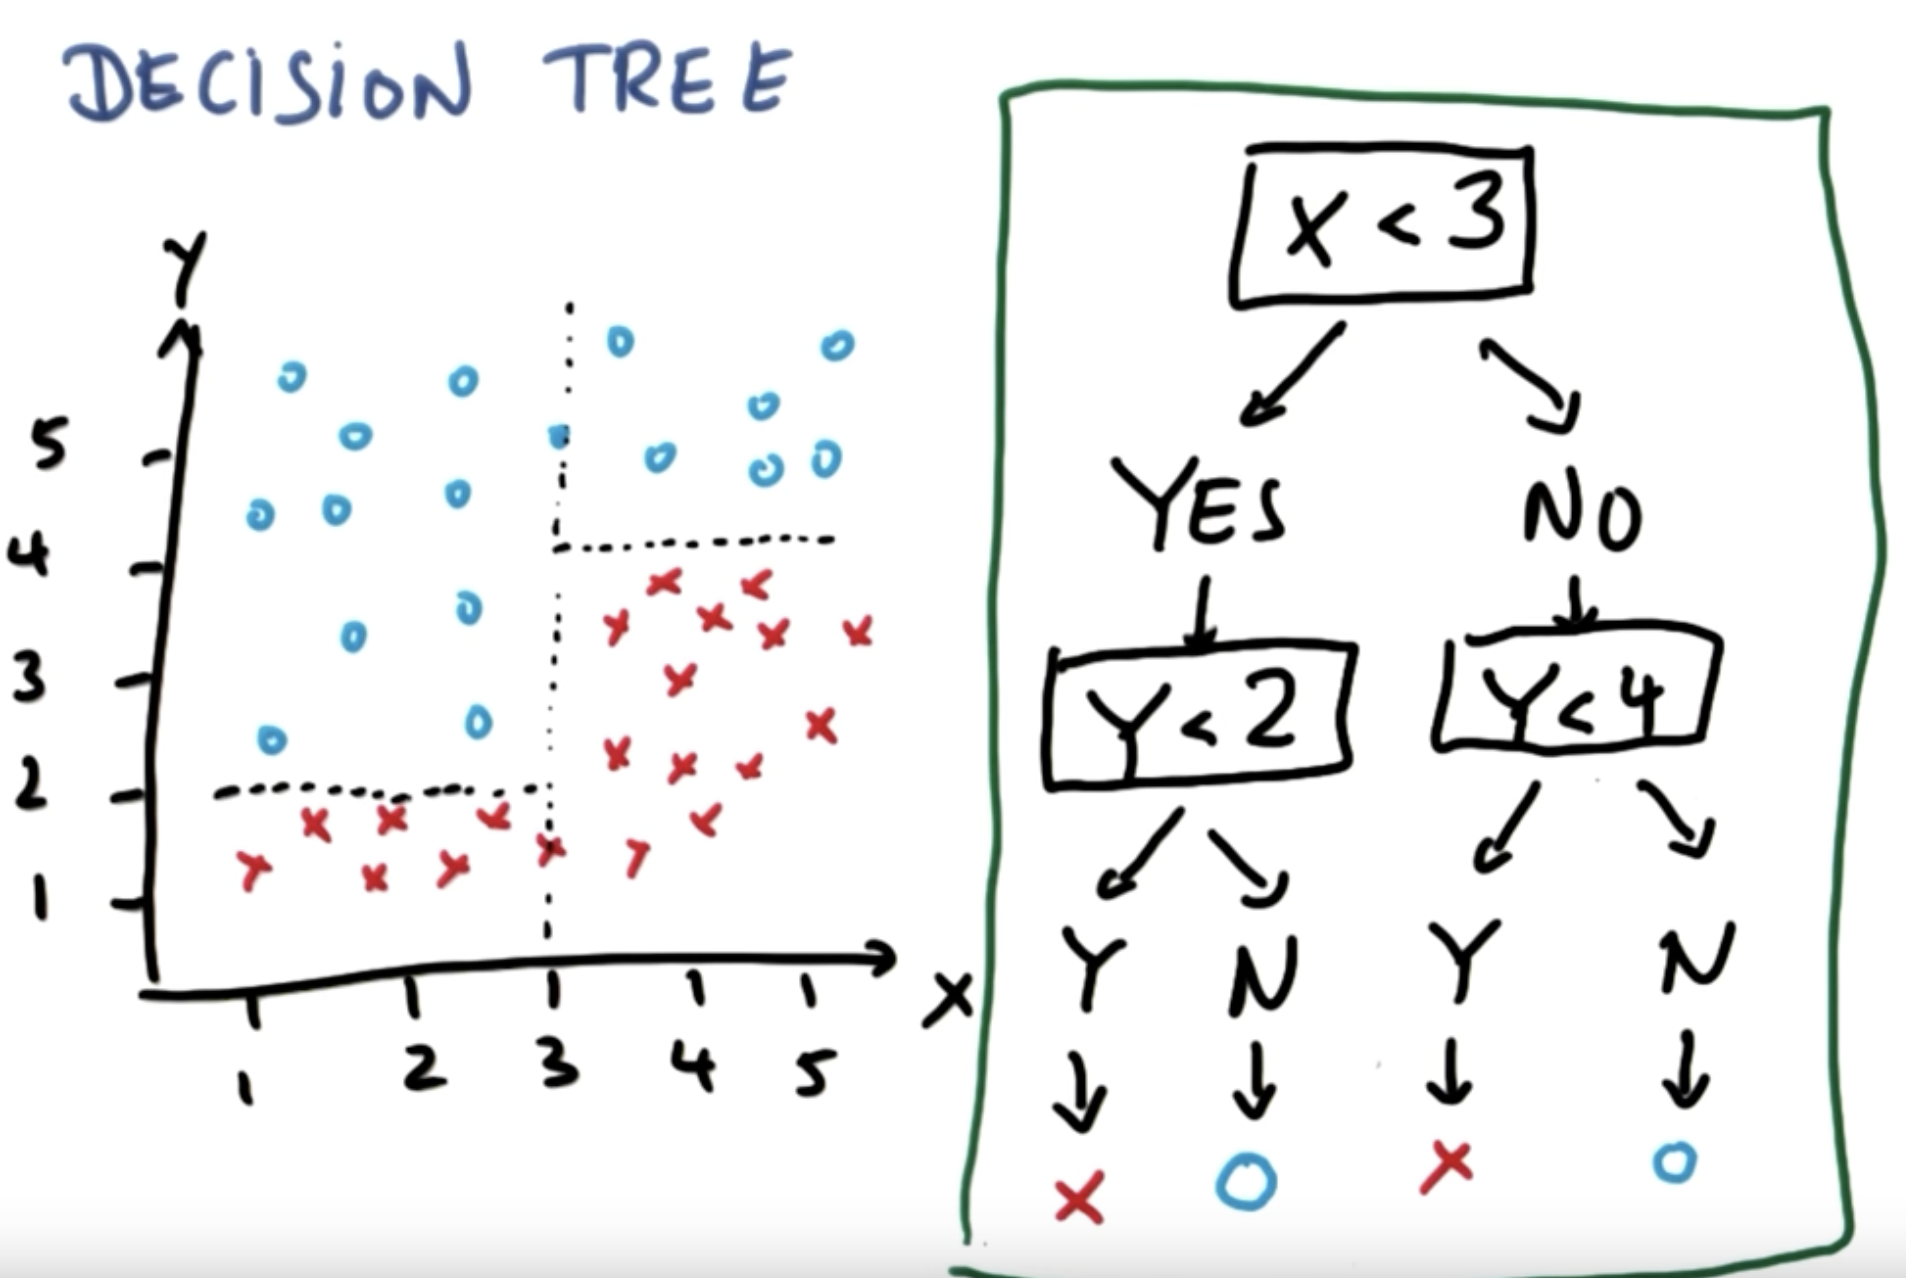 DECISION TREE
Y
5
4
3
2
1
1 2 3 4 5
X
X < 3
YES NO
Y < 2 Y < 4
Y N Y N